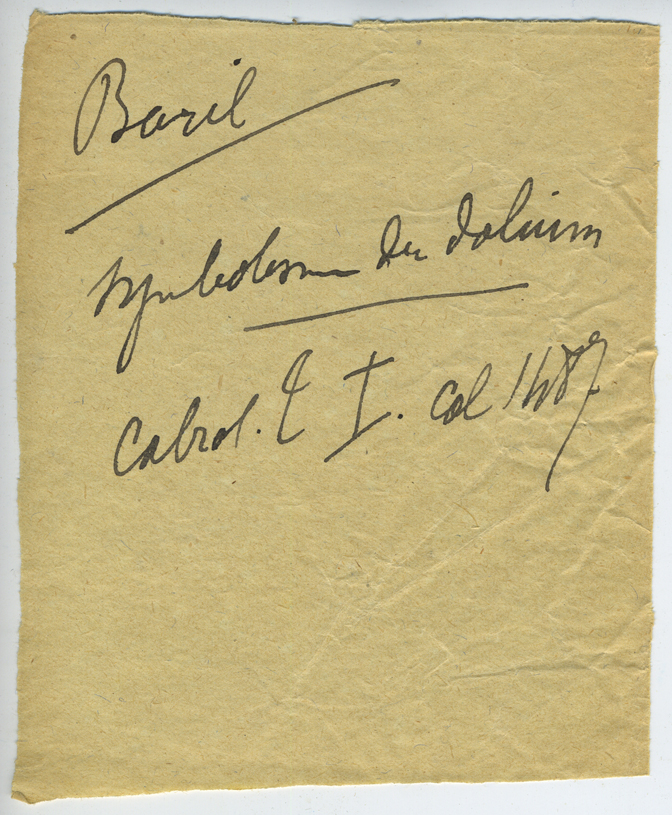 Baril
symbolisme du dolium
Cabrol. t I. col 1487